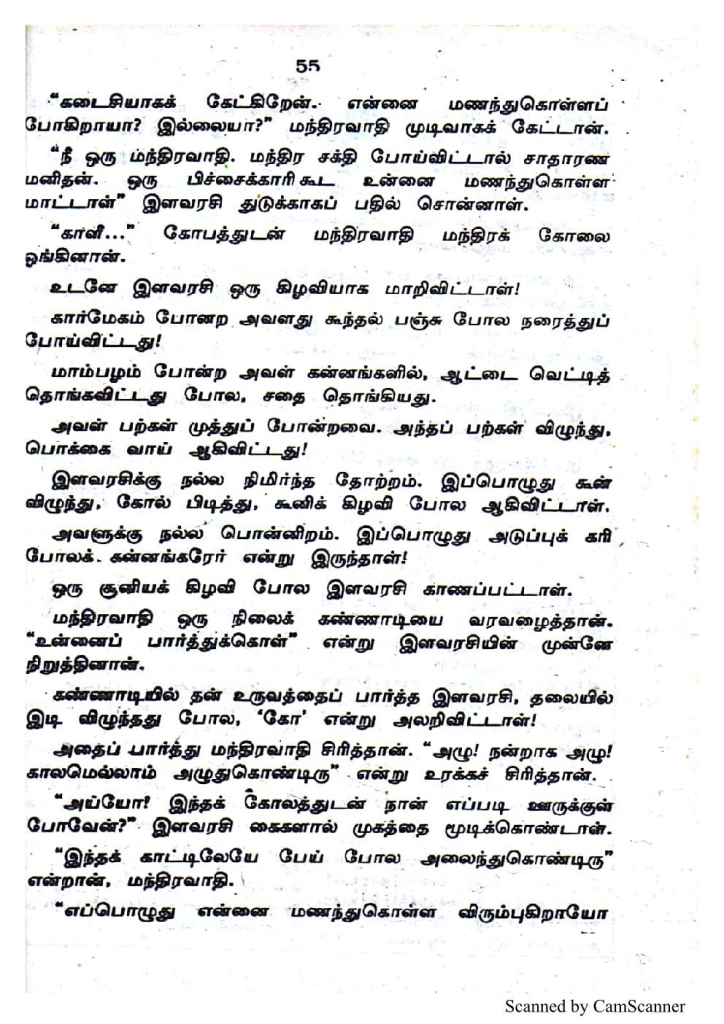 55
“கடைசியாகக் கேட்கிறேன். என்னை மணந்துகொள்ளப்
போகிறாயா? இல்லையா?” மந்திரவாதி முடிவாகக் கேட்டான்.
“நீ ஒரு மந்திரவாதி. மந்திர சக்தி போய்விட்டால் சாதாரண
மனிதன். ஒரு பிச்சைக்காரி கூட உன்னை மணந்துகொள்ள
மாட்டாள்” இளவரசி துடுக்காகப் பதில் சொன்னாள்.
“காளீ...” கோபத்துடன் மந்திரவாதி மந்திரக் கோலை
ஓங்கினான்.
உடனே இளவரசி ஒரு கிழவியாக மாறிவிட்டாள்!
கார்மேகம் போனற அவளது கூந்தல் பஞ்சு போல நரைத்துப்
போய்விட்டது!
மாம்பழம் போன்ற அவள் கன்னங்களில், ஆட்டை வெட்டித்
தொங்கவிட்டது போல, சதை தொங்கியது.
அவள் பற்கள் முத்துப் போன்றவை. அந்தப் பற்கள் விழுந்து,
பொக்கை வாய் ஆகிவிட்டது!
இளவரசிக்கு நல்ல நிமிர்ந்த தோற்றம். இப்பொழுது கூன்
விழுந்து, கோல் பிடித்து, கூனிக் கிழவி போல ஆகிவிட்டாள்.
அவளுக்கு நல்ல பொன்னிறம். இப்பொழுது அடுப்புக் கரி
போலக் கன்னங்கரேர் என்று இருந்தாள்!
ஒரு சூனியக் கிழவி போல இளவரசி காணப்பட்டாள்.
மந்திரவாதி ஒரு நிலைக் கண்ணாடியை வரவழைத்தான்.
“உன்னைப் பார்த்துக்கொள்” என்று இளவரசியின் முன்னே
நிறுத்தினான்.
கண்ணாடியில் தன் உருவத்தைப் பார்த்த இளவரசி, தலையில்
இடி விழுந்தது போல, ‘கோ’ என்று அலறிவிட்டாள்!
அதைப் பார்த்து மந்திரவாதி சிரித்தான். “அழு! நன்றாக அழு!
காலமெல்லாம் அழுதுகொண்டிரு” என்று உரக்கச் சிரித்தான்.
“அய்யோ! இந்தக் கோலத்துடன் நான் எப்படி ஊருக்குள்
போவேன்?” இளவரசி கைகளால் முகத்தை மூடிக்கொண்டாள்.
“இந்தக் காட்டிலேயே பேய் போல அலைந்துகொண்டிரு”
என்றான், மந்திரவாதி.
“எப்பொழுது என்னை மணந்துகொள்ள விரும்புகிறாயோ
Scanned by CamScanner